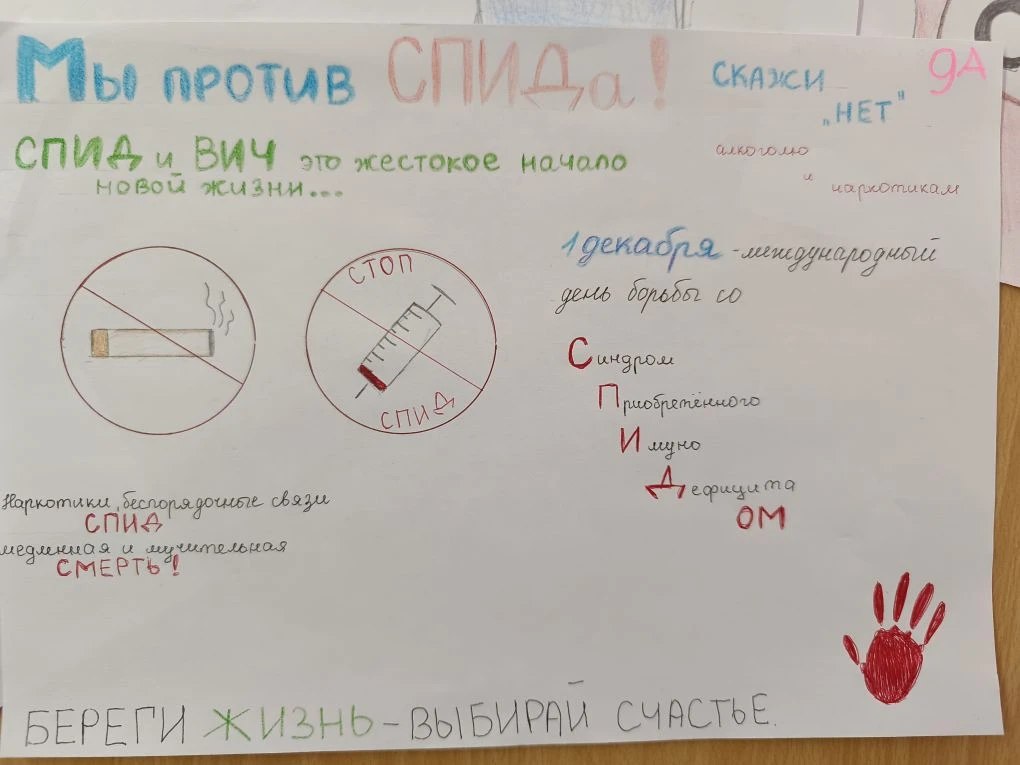 Мы против СПИДа!
СКАЖИ
„НЕТ"
алкоголю
и
наркотикам
9А
СПИД и ВИЧ это жестокое начало
новой жизни...
СТОП
СПИД
1 декабря - международный
день борьбы со
Синдром
Приобретённого
Имуно
Дефицита
ОМ
Наркотики, беспорядочные связи
СПИД
медленная и мучительная
СМЕРТЬ!
БЕРЕГИ ЖИЗНЬ - ВЫБИРАЙ СЧАСТЬЕ.